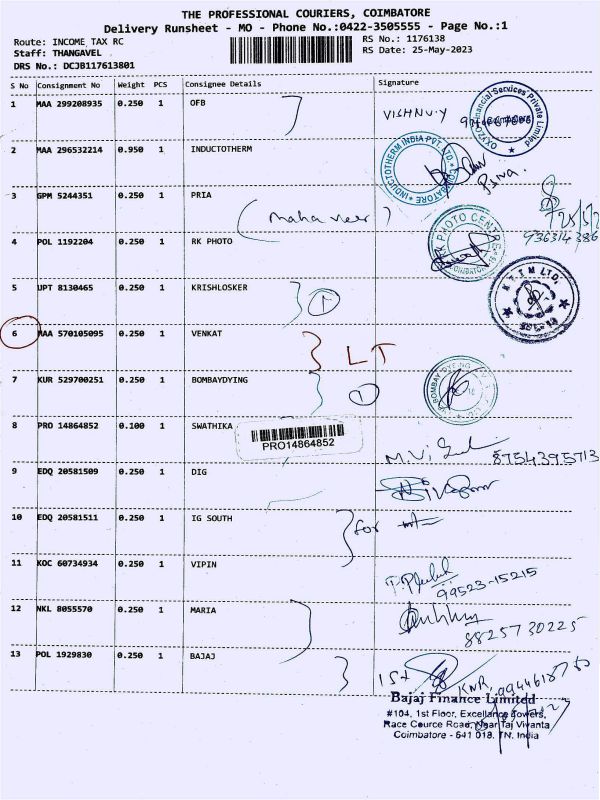 THE PROFESSIONAL COURIERS, COIMBATORE
Delivery Runsheet - MO - Phone No.:0422-3505555 - Page No.:1
Route: INCOME TAX RC
RS No.: 1176138
Staff: THANGAVEL
RS Date: 25-May-2023
DRS No.: DCJB117613801
S No Consignment No Weight PCS Consignee Details Signature
1 MAA 299208935 0.250 1 OFB
VISHNU.Y
2 MAA 296532214 0.950 1 INDUCTOTHERM
INDUCTOTHERM INDIA PVT. LTD. COIMBATORE
3 GPM 5244351 0.250 1 PRIA
(mahaveer)
4 POL 1192204 0.250 1 RK PHOTO
RK PHOTO CENTRE
COIMBATORE
5 UPT 8130465 0.250 1 KRISHLOSKER
1
6 MAA 570105095 0.250 1 VENKAT
LT
7 KUR 529700251 0.250 1 BOMBAYDYING
1
BOMBAY DYEING
8 PRO 14864852 0.100 1 SWATHIKA
PRO14864852
8754395713
9 EDQ 20581509 0.250 1 DIG
10 EDQ 20581511 0.250 1 IG SOUTH
for
11 KOC 60734934 0.250 1 VIPIN
99523-15215
12 NKL 8055570 0.250 1 MARIA
8825730225
13 POL 1929830 0.250 1 BAJAJ
KNR,
Bajaj Finance Limited
#104, 1st Floor, Excellance Towers,
Race Cource Road, Near Taj Vivanta
Coimbatore - 641 018. TN. India